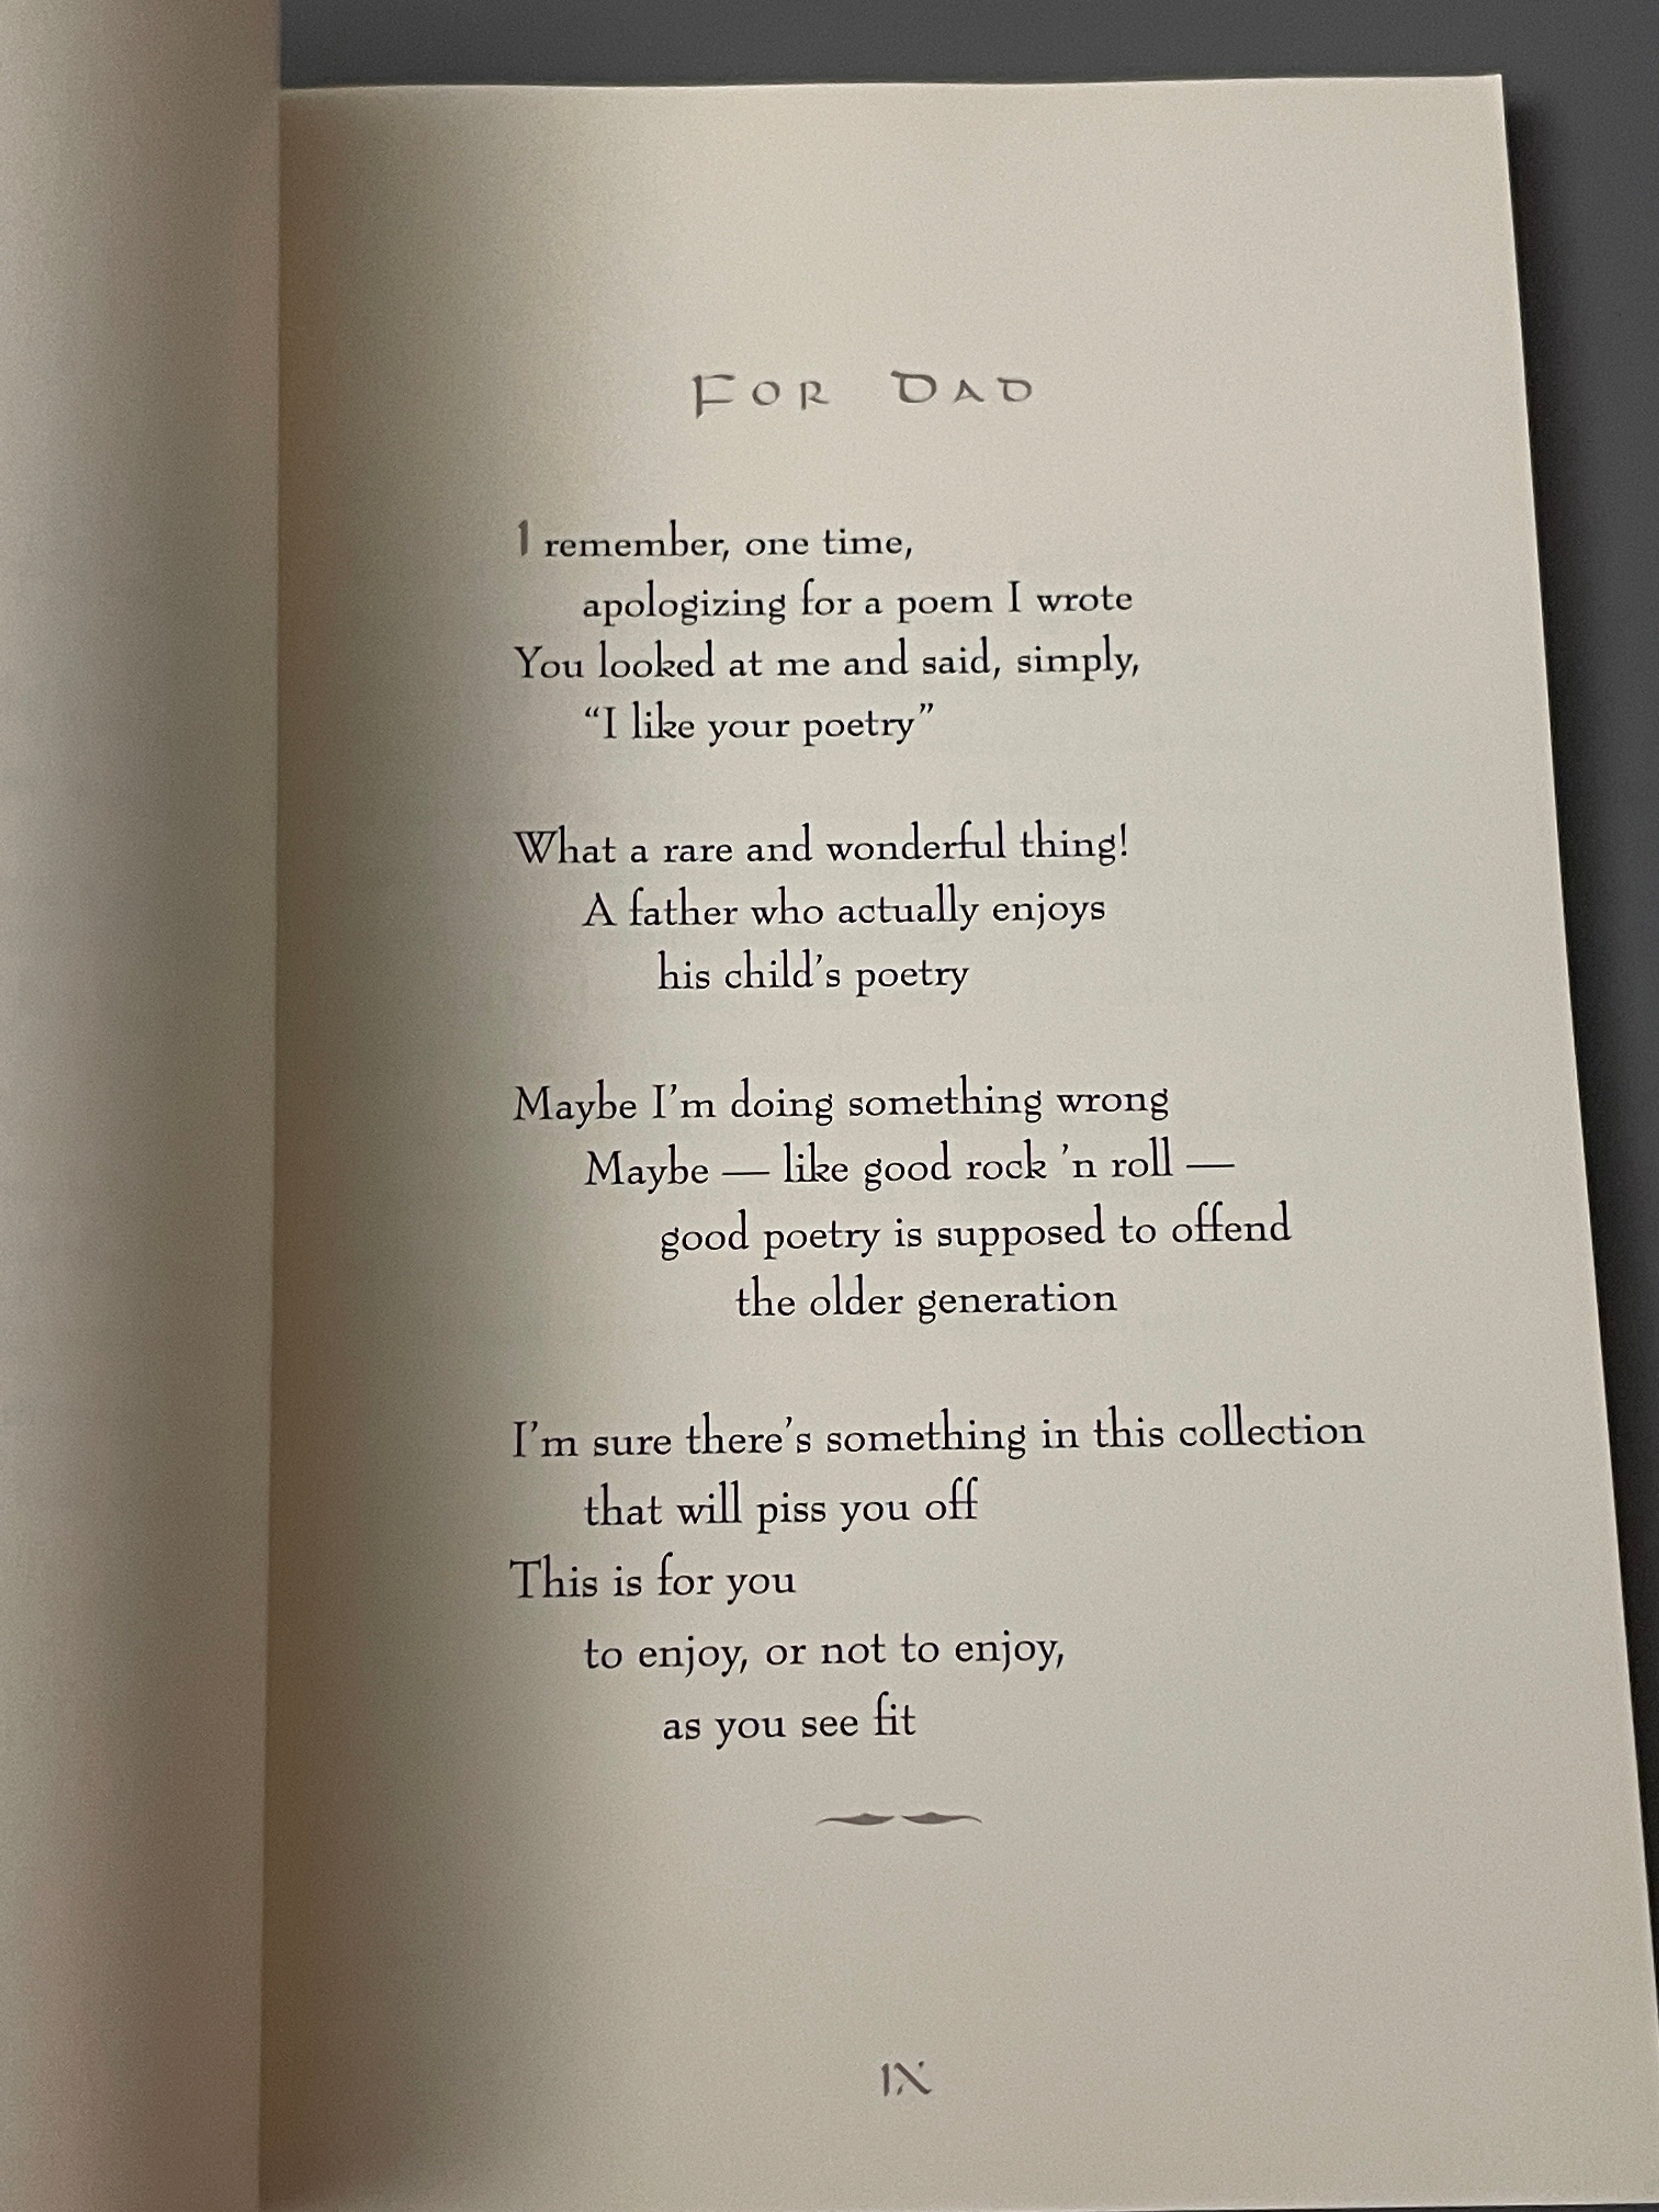 FOR DAD
I remember, one time,
apologizing for a poem I wrote
You looked at me and said, simply,
“I like your poetry”
What a rare and wonderful thing!
A father who actually enjoys
his child’s poetry
Maybe I’m doing something wrong
Maybe — like good rock ’n roll —
good poetry is supposed to offend
the older generation
I’m sure there’s something in this collection
that will piss you off
This is for you
to enjoy, or not to enjoy,
as you see fit
IX